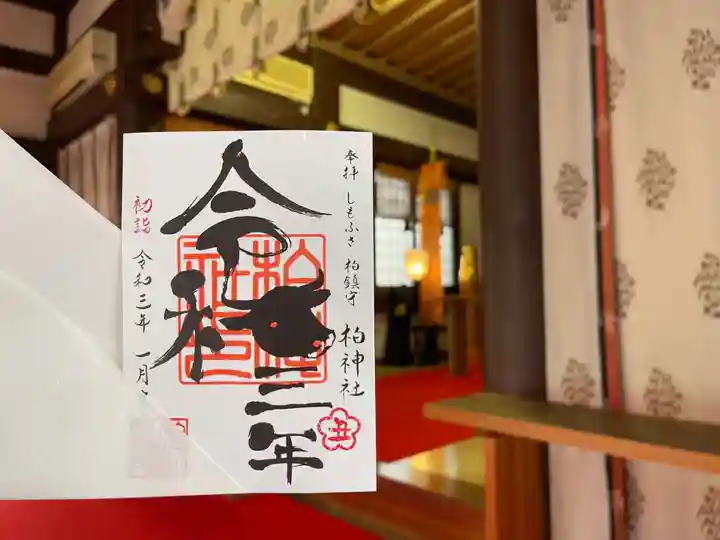 奉拝 しもふさ 柏鎮守 柏神社
令和
三年
丑
初詣 令和三年 一月